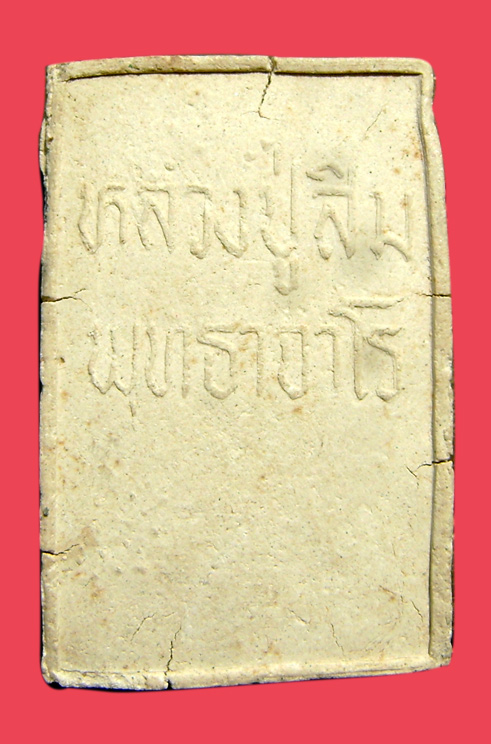 หลวงปู่สิม
พุทธาจาโร